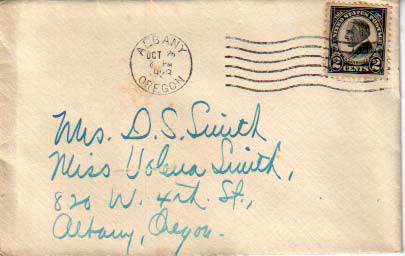 ALBANY
OCT
PM
OREGON
UNITED STATES POSTAGE
2 CENTS 2
Mrs. D. S. Smith
Miss Volena Smith,
820 W. 4th. St.,
Albany, Oregon.